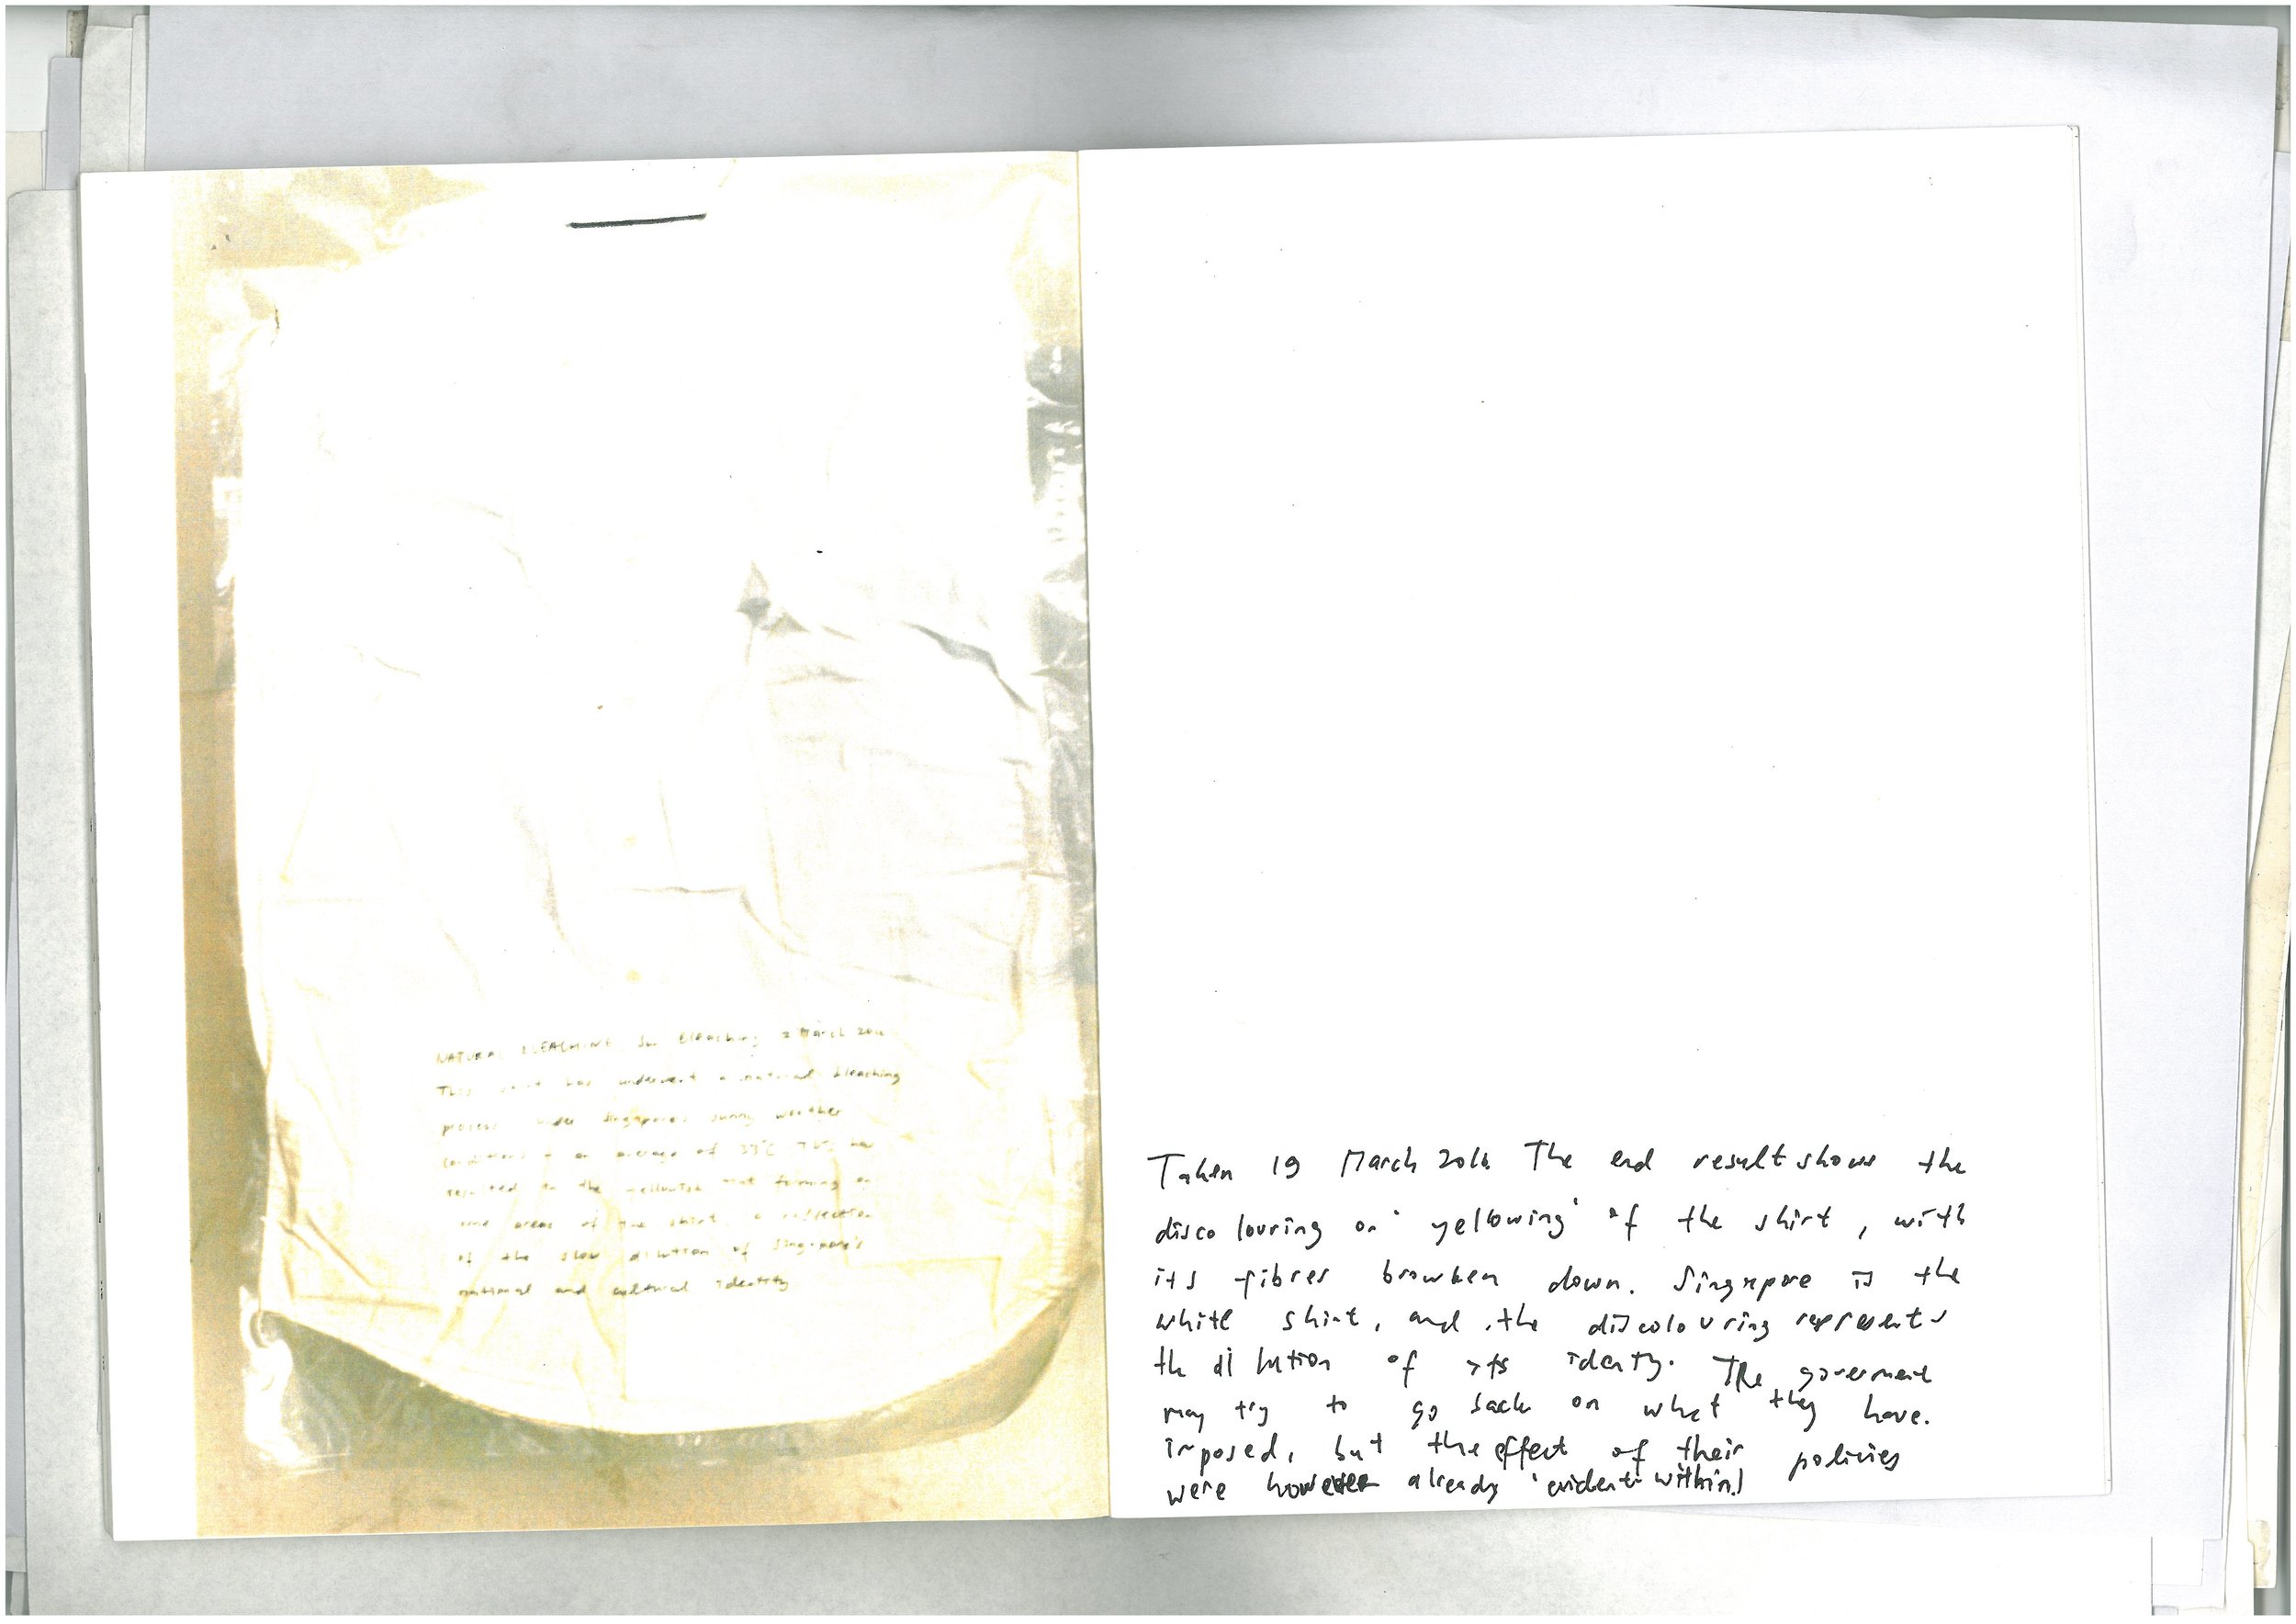 NATURAL BLEACHING Sun Bleaching 2 March
This shirt has underwent a natural bleaching
process under Singapore's sunny weather
conditions an average of 33°C This has
resulted in the yellowish tint forming on
some areas of the shirt, a reflection
of the slow dilution of Singapore's
national and cultural identity
Taken 19 March 2016 The end result shows the
discolouring or 'yellowing' of the shirt, with
its fibres browken down. Singapore is the
white shirt, and the discolouring represents
the dilution of its identy. The goverment
may try to go back on what they have.
imposed, but the effect of their policies
were however already 'evident' within!